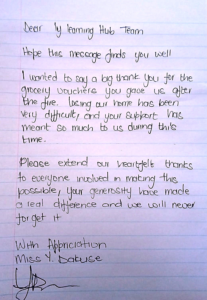 Dear Iy learning Hub Team
Hope this message finds you well
I wanted to say a big thank you for the
grocery vouchers you gave us after
the fire. Losing our home has been
very difficult, and your support has
meant so much to us during this
time.
Please extend our heartfelt thanks
to everyone involved in making this
possible, your generosity have made
a real difference and we will never
forget it
With Appreciation
Miss Y. Dakuse